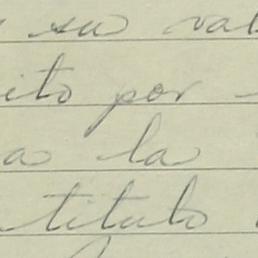 su val
ito por
a la
titulo